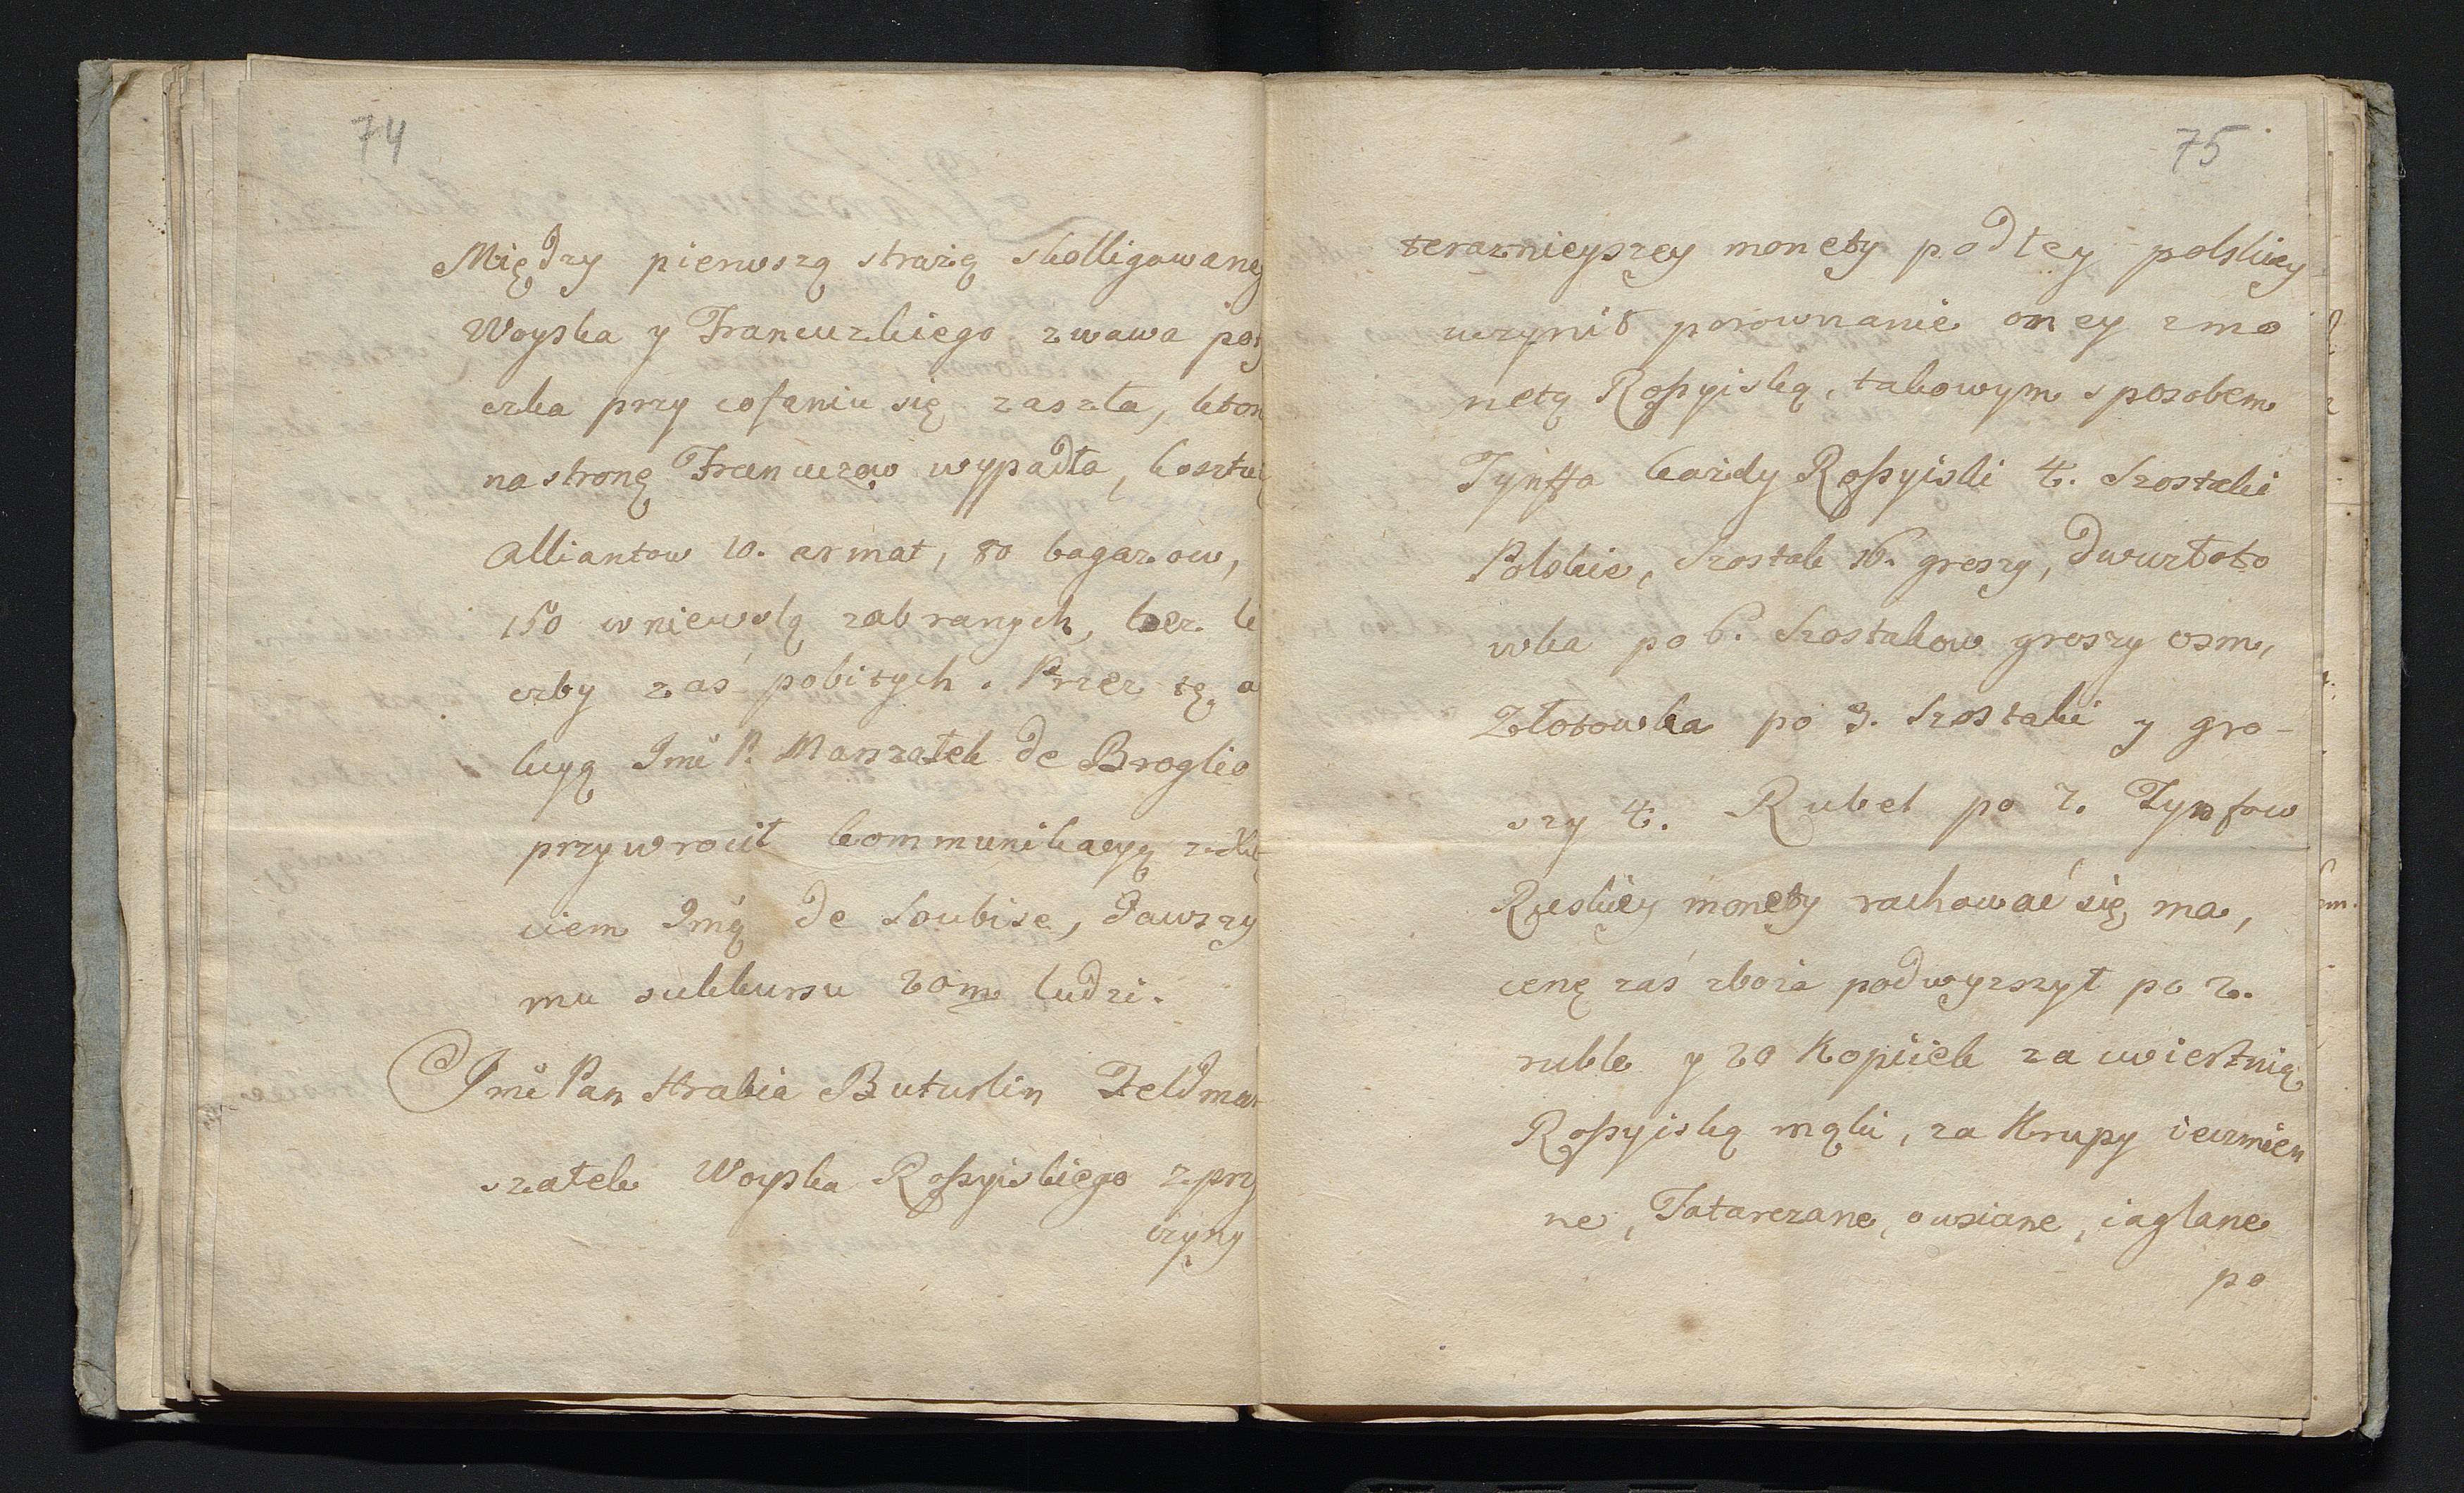 74
Między pierwszą strażą skolligowaney
Woyska y Francuzkiego zwawa poty
czka przy cofaniu się zaszła, ktora
na stronę Francuzow wypadła, kosztuię
Alliantow 10. armat, 80 bagazow,
150 w niewolą zabranych, bez li
czby zaś pobitych. Przez tę a
kcyą Jmć P. Marszałek de Broglio
przywrocił kommunikacyą z Xią
ciem Jmcią de Soubise, dawszy
mu sukkursu 20m ludzi.
Jmć Pan Hrabia Buturlin Feldmar
szałek Woyska Rossyiskiego z przy
czyny
75
teraznieyszey monety podłey polskiey
uczynił porownanie oney z mo
netą Rossyiską, takowym sposobem
Tynffa każdy Rossyiski 4. Szostaki
Polskie, Szostak 16. groszy, dwuzłoto
wka po 6. Szostakow groszy osm,
Złotowka po 3. Szostaki y gro-
szy 4. Rubel po 7. Tynfow
Ruskiey monety rachować się ma,
cenę zaś zboża podwyzszył po 2.
ruble y 20 Kopiiek za cwiertnię
Rossyiską mąki, za Krupy ięczmien
ne, Tatarczane, owsiane, iaglane
po